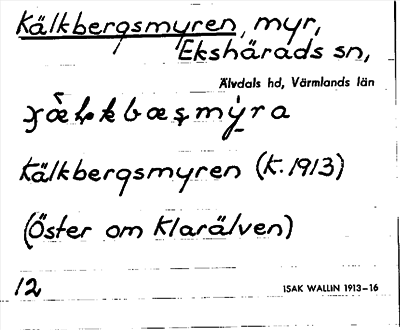 Kälkbergsmyren, myr,
Ekshärads sn,
Älvdals hd, Värmlands län
Kälkbergsmyren (K. 1913)
(Öster om Klarälven)
12
ISAK WALLIN 1913–16